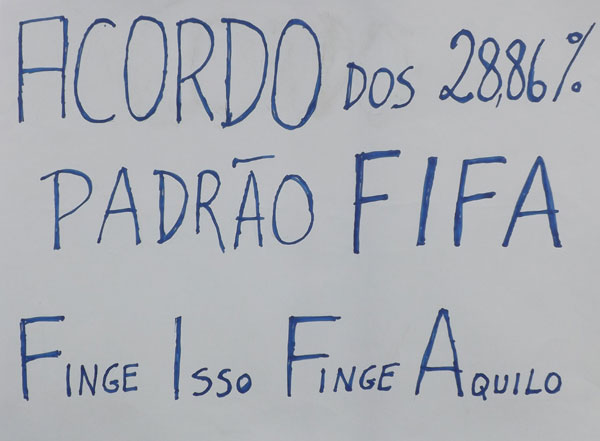 ACORDO DOS 28,86%
PADRÃO FIFA
FINGE ISSO FINGE AQUILO